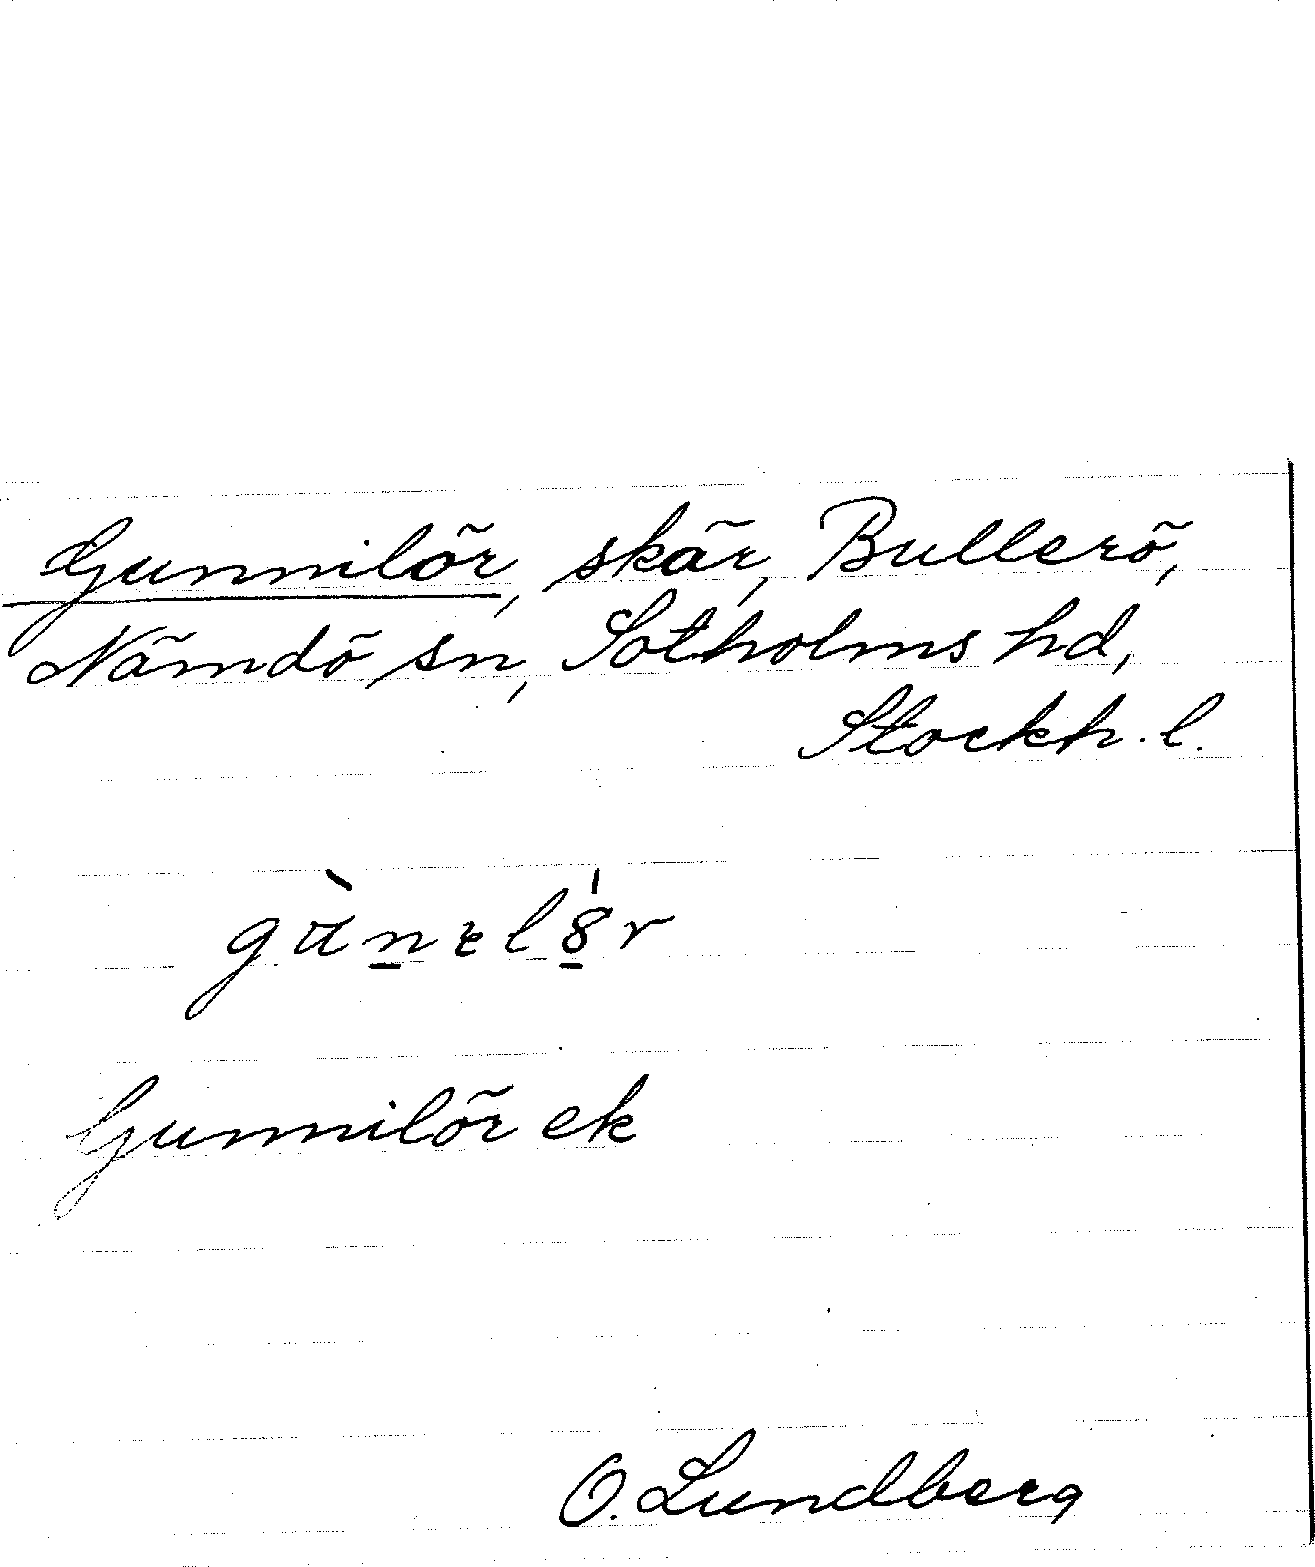 Gunnilör, skär, Bullerö,
Nämdö sn, Sotholms hd,
Stockh. l.
Gunnilör ek
O. Lundberg